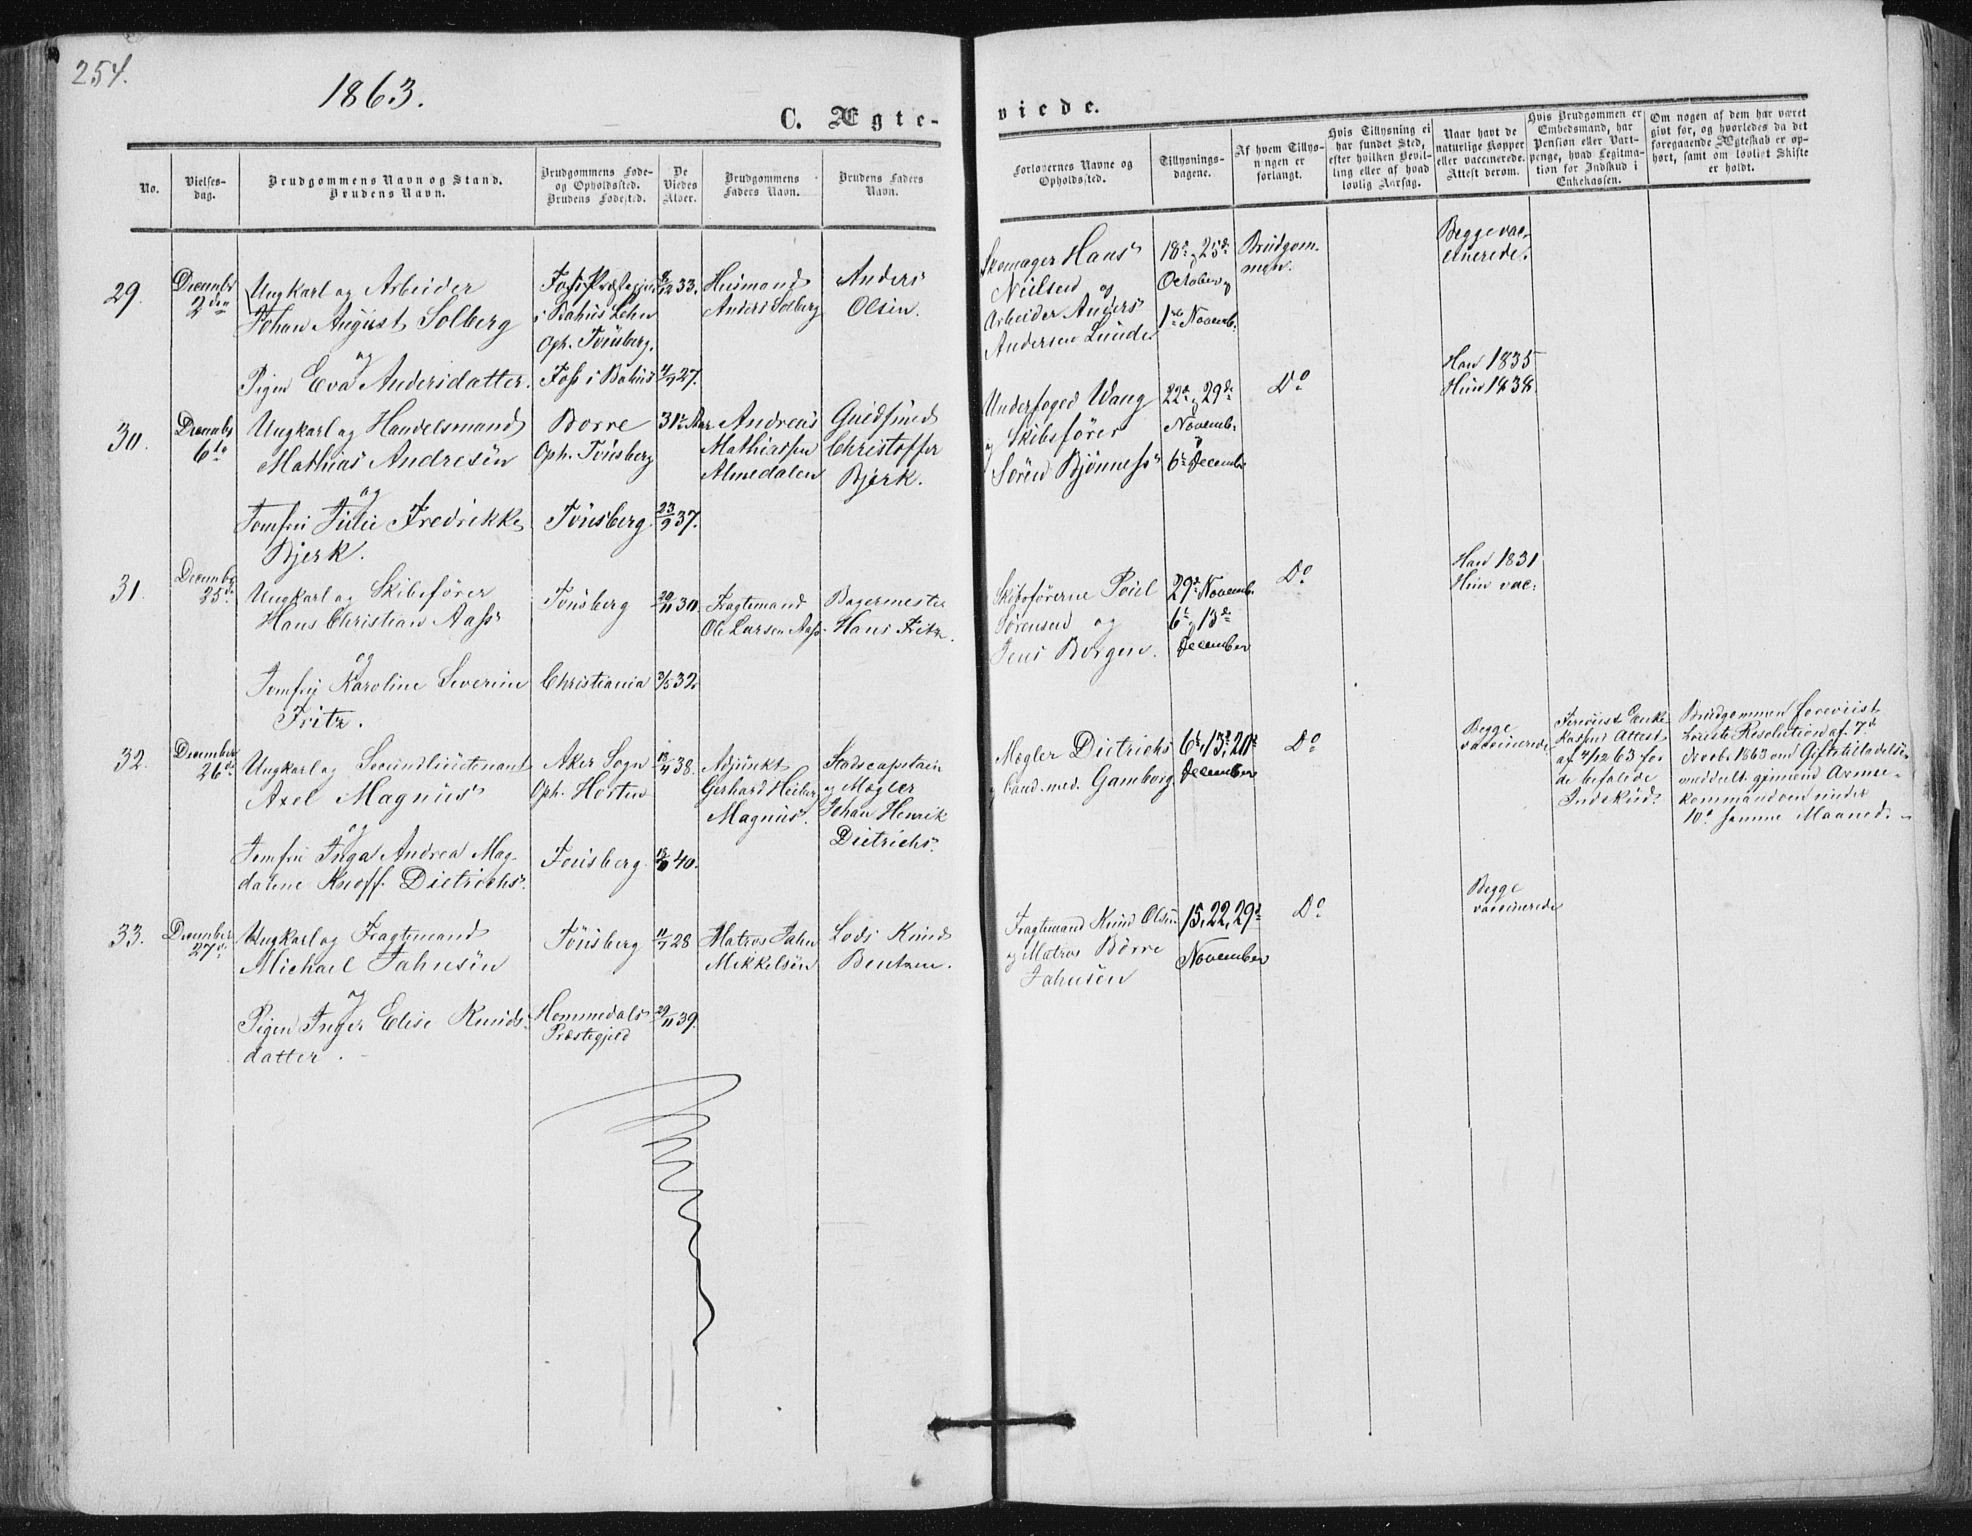 254.
1863.
C. Ægte-
viede.
No.
Vielses-
dag.
Brudgommens Navn og Stand.
Brudens Navn.
Brudgommens Føde-
og Opholdssted.
Brudens Fødested.
De
Viedes
Alder.
Brudgommens
Faders Navn.
Brudens Faders
Navn.
Forlovernes Navne og
Opholdssted.
Tillysnings-
dagene.
Af hvem Tillys-
ningen er
forlangt.
Hvis Tillysning ei
har fundet Sted,
efter hvilken Bevil-
ling eller af hvad
lovlig Aarsag.
Naar havt de
naturlige Kopper
eller vaccinerede.
Attest derom.
Hvis Brudgommen er
Embedsmand, har
Pension eller Vart-
penge, hvad Legitima-
tion for Indskud i
Enkekassen.
Om nogen af dem har været
givt før, og hvorledes da det
foregaaende Ægteskab er op-
hørt, samt om lovligt Skifte
er holdt.
29.
Decembr
2den
Ungkarl og Arbeider
Johan August Solberg
og
Pigen Eva Andersdatter.
Foss Præstegjeld
i Bahus Lehn
Oph. Tønsberg.
Foss i Bahus
33.
27.
Huusmand
Anders Solberg
Anders
Olsen.
Skomager Hans
Nielsen og
Arbeider Anders
Andersen Lunde
18de, 25de
October og
1ste Novemb.
Brudgom-
men.
Begge vac-
cinerede.
30.
Decembr
6te
Ungkarl og Handelsmand
Mathias Andresen
og
Jomfru Julie Fredrikke
Bjerk.
Borre
Oph. Tønsberg
Tønsberg
31te Aar
23/9 37.
Andreas
Mathiassen
Almedalen
Guldsmed
Christoffer
Bjerk.
Underfoged Wang
og Skibsfører
Søren Bjønness
22de, 29de
Novemb.
og
6te Decembr
Do
Han 1835
Hun 1838
31.
Decembr
25de
Ungkarl og Skibsfører
Hans Christian Aass
og
Jomfru Karoline Severine
Fritz.
Tønsberg
Christiania
20/11 30.
3/5 32
Fragtemand
Ole Larsen Aass.
Bagermester
Hans Fritz.
Skibsførerne Poul
Sørensen og
Jens Borgen.
29de Novemb.
6te, 13de
December
Do
Han 1831
Hun vac:
32.
December
26de
Ungkarl og Secondlieutenant
Axel Magnus
og
Jomfru Inga Andrea Mag-
dalene Knoff Dietrichs.
Aker Sogn
Oph. Horten
Tønsberg
38.
40.
Adjunkt
Gerhard Heiberg
Magnus.
Stadscaptain
og Mægler
Johan Henrik
Dietrichs.
Mægler Dietrichs
og Cand. med. Gamborg
6te, 13de, 20de
December
Do
Begge
vaccinerede
Foreviist Enke-
kasse Attest
af 4/12 63 for
de befalede
Indskud.
Brudgommen foreviist
Resolution af 7de
Novbr 1863 om Giftetilladelse
meddelt gjennem Armee-
kommandoen under
10de samme Maaned.
33.
December
27de
Ungkarl og Fragtemand
Michael Jahnsen
og
Pigen Inger Elise Knuds-
datter.
Tönsberg
Hommedals
Præstegjeld
11/7 28
29/11 39.
Matros Jahn
Mikkelsen
Lods Knud
Bentzen.
Fragtemand Knud Olsen
og Matros Børre
Jahnsen
15, 22, 29de
November
Do
Begge
vaccinerede